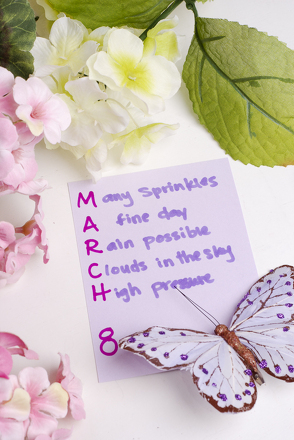 Many Sprinkles
A fine day
Rain possible
Clouds in the sky
High pressure
8